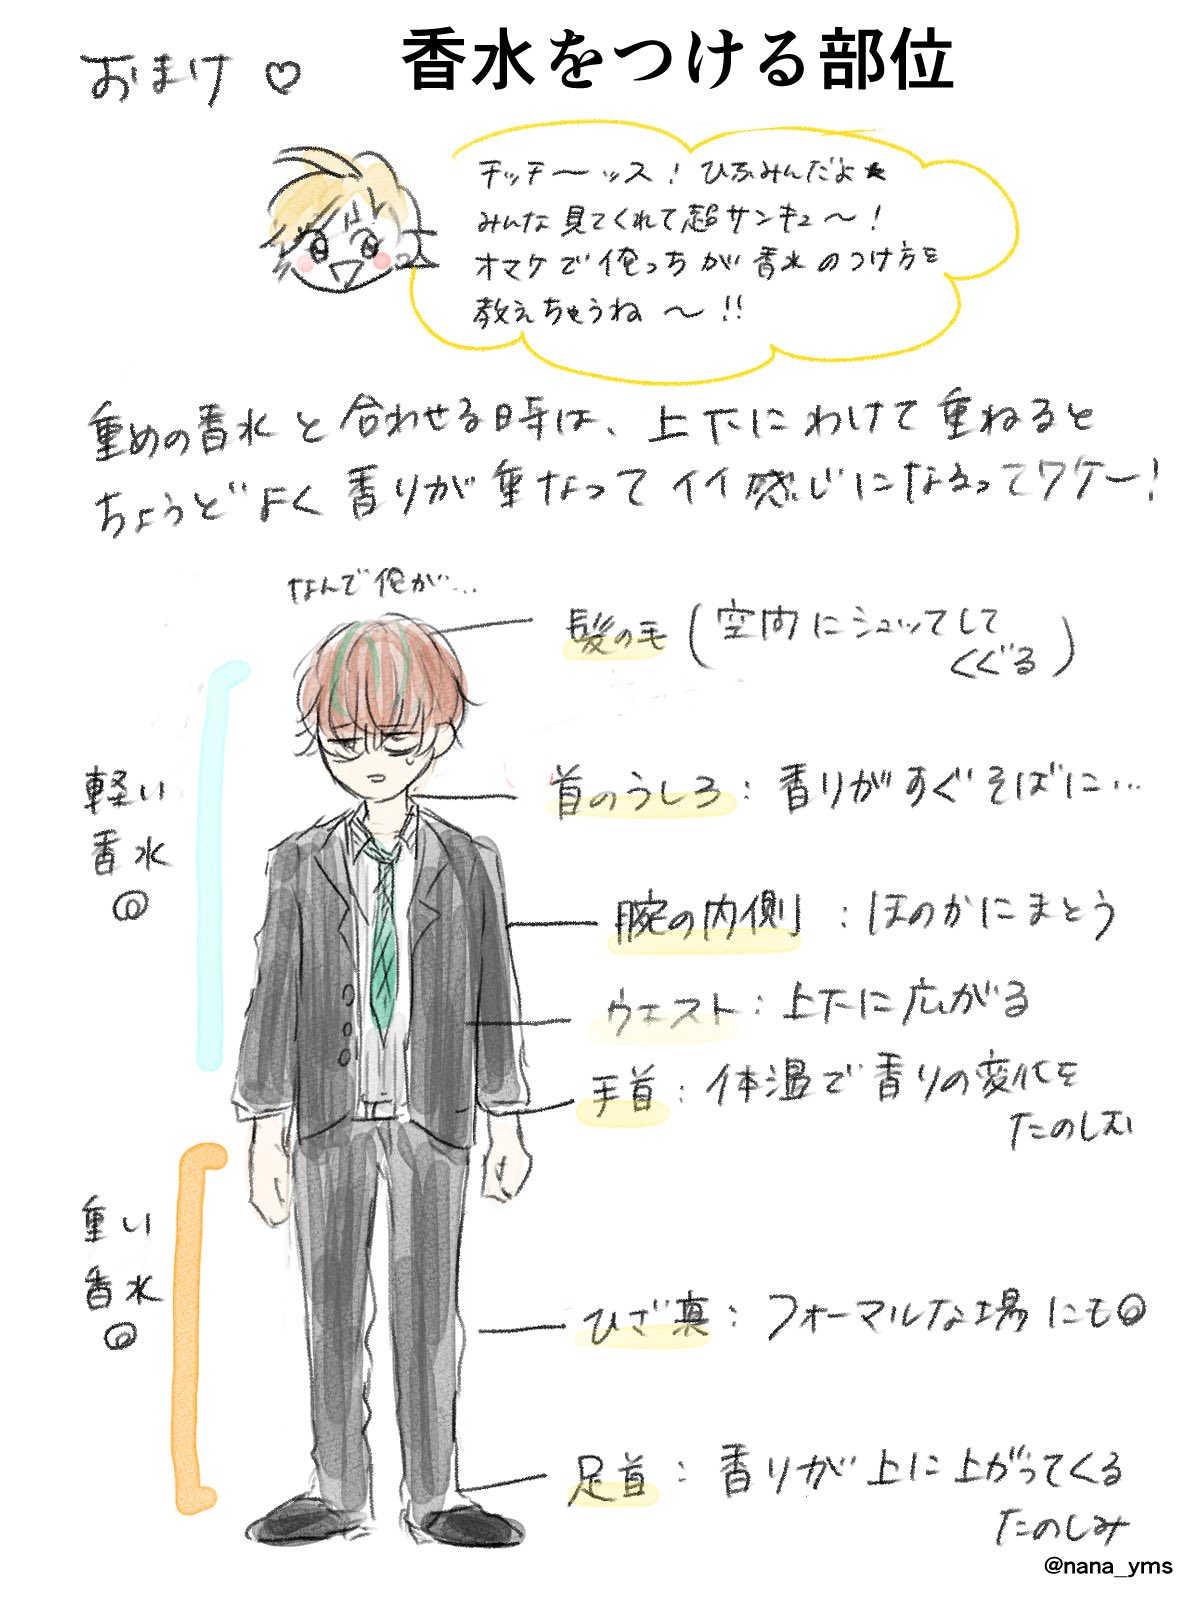 おまけ♡
香水をつける部位
チッチーッス!ひふみんだよ★
みんな見てくれて超サンキュ〜!
オマケで俺っちが香水のつけ方を
教えちゃうね〜!!
重めの香水と合わせる時は、上下にわけて重ねると
ちょうどよく香りが重なってイイ感じになるってワケー!
なんで俺が…
髪の毛(空間にシュッてして
くぐる)
首のうしろ:香りがすぐそばに…
軽い
香水
◎
腕の内側:ほのかにまとう
ウエスト:上下に広がる
手首:体温で香りの変化を
たのしむ
重い
香水
◎
ひざ裏:フォーマルな場にも◎
足首:香りが上に上がってくる
たのしみ
@nana_yms